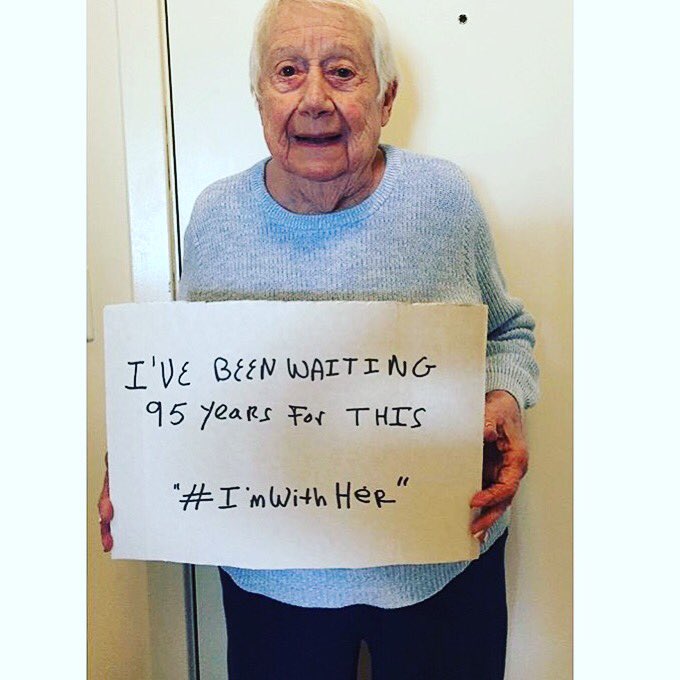 I'VE BEEN WAITING
95 YeaRs FoR THIS
"#I'mWithHeR"